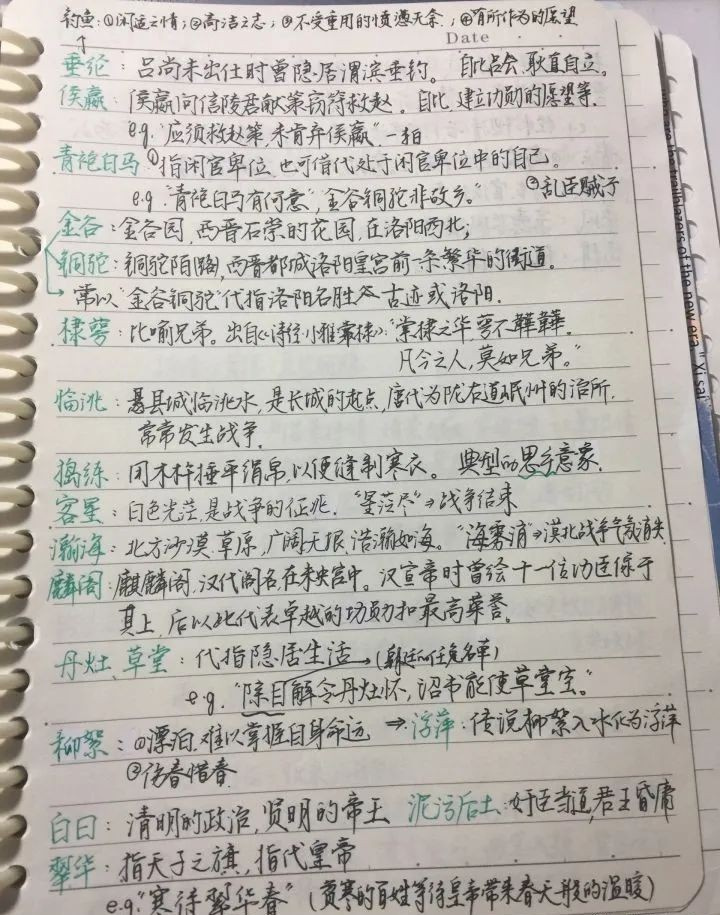 钓鱼：①闲适之情；②高洁之志；③不受重用的愤懑无奈；④有所作为的愿望
Date
垂纶：吕尚未出仕时曾隐居渭滨垂钓。自比吕尚，耿直自立。
侯嬴：侯嬴向信陵君献策窃符救赵。自比，建立功勋的愿望等.
e.g."应须救赵策，未肯弃侯嬴"一拍
青袍白马①指闲官卑位，也可借代处于闲官卑位中的自己。
e.g."青袍白马有何意"，金谷铜驼非故乡。" ②乱臣贼子
金谷：金谷园，西晋石崇的花园，在洛阳西北；
铜驼：铜驼陌路，西晋都城洛阳皇宫前一条繁华的街道。
常以"金谷铜驼"代指洛阳名胜古迹或洛阳.
棣萼：比喻兄弟。出自《诗经小雅常棣》："常棣之华，萼不韡韡.
凡今之人，莫如兄弟。"
临洮：县城临洮水，是长城的起点，唐代为陇右道岷州的治所.
常常发生战争.
捣练：用木杵捶平绢帛，以便缝制寒衣。典型的思乡意象.
客星：白色光芒，是战争的征兆."星茫尽"→战争结束
瀚海：北方沙漠、草原，广阔无垠，浩瀚如海。"海雾消"→漠北战争气氛消失
麟阁：麒麟阁，汉代阁名在未央宫中。汉宣帝时曾绘十一位功臣像于
其上，后以此代表卓越的功勋和最高荣誉。
丹灶、草堂：代指隐居生活 →(朝廷的任免名单)
e.g."除目解令丹灶怀，诏书能使草堂空。"
柳絮：①漂泊，难以掌握自身命运 →浮萍：传说柳絮入水化为浮萍
②伤春惜春
白日：清明的政治，贤明的帝王 泥污后土：奸臣当道，君王昏庸
翠华：指天子之旗，指代皇帝
e.g."寒待翠华春"（贫寒的百姓等待皇帝带来春天般的温暖）
the trailblazers of the new era." Xi said